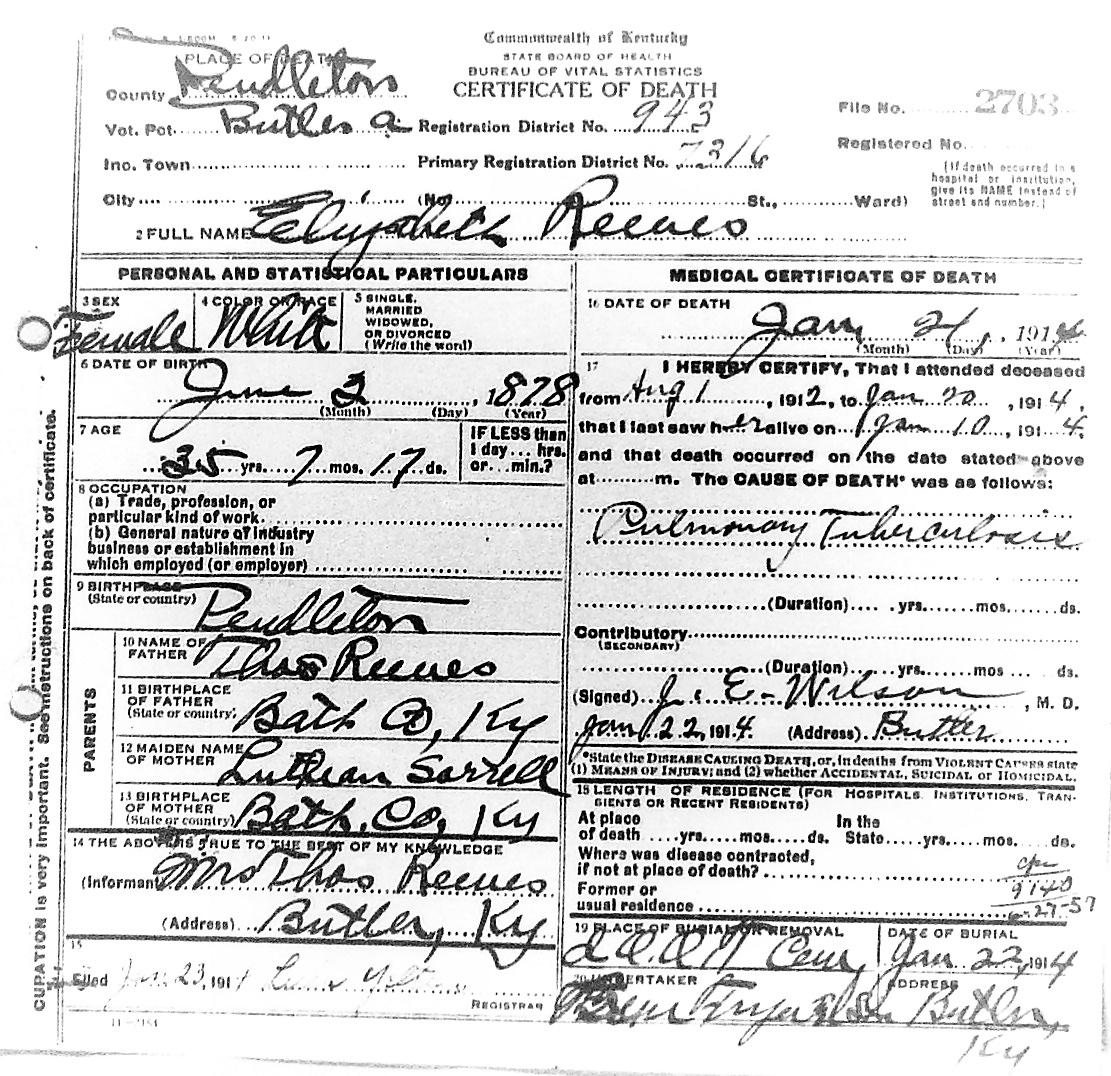 Commonwealth of Kentucky
STATE BOARD OF HEALTH
BUREAU OF VITAL STATISTICS
CERTIFICATE OF DEATH
PLACE OF DEATH
County Pendleton
Vot. Pct. Butler a Registration District No. 943
File No. 2703
Inc. Town Primary Registration District No. 7316
Registered No.
City (No. St., Ward)
(If death occurred in a
hospital or institution,
give its NAME instead of
street and number.)
2 FULL NAME Elizabeth Reeves
PERSONAL AND STATISTICAL PARTICULARS
3 SEX
Female
4 COLOR OR RACE
White
5 SINGLE,
MARRIED
WIDOWED,
OR DIVORCED
(Write the word)
6 DATE OF BIRTH
June 2, 1878
(Month) (Day) (Year)
7 AGE
35 yrs. 7 mos. 17 ds.
IF LESS than
1 day... hrs.
or... min.?
8 OCCUPATION
(a) Trade, profession, or
particular kind of work
(b) General nature of industry
business or establishment in
which employed (or employer)
9 BIRTHPLACE
(State or country)
Pendleton
PARENTS
10 NAME OF
FATHER
Thos Reeves
11 BIRTHPLACE
OF FATHER
(State or country)
Bath Co, Ky
12 MAIDEN NAME
OF MOTHER
Luthean Sorrell
13 BIRTHPLACE
OF MOTHER
(State or country)
Bath. Co, Ky
14 THE ABOVE IS TRUE TO THE BEST OF MY KNOWLEDGE
(Informant) Mrs Thos Reeves
(Address) Butler, Ky
15
Filed Jan 23, 1914
REGISTRAR
MEDICAL CERTIFICATE OF DEATH
16 DATE OF DEATH
Jan 21, 1914
(Month) (Day) (Year)
17 I HEREBY CERTIFY, That I attended deceased
from Aug 1, 1912, to Jan 20, 1914,
that I last saw her alive on Jan 10, 1914.
and that death occurred on the date stated above
at m. The CAUSE OF DEATH* was as follows:
Pulmonary Tuberculosis
(Duration) yrs. mos. ds.
Contributory
(SECONDARY)
(Duration) yrs. mos ds.
(Signed) J. E. Wilson, M. D.
Jan 22, 1914. (Address) Butler
*State the DISEASE CAUSING DEATH, or, in deaths from VIOLENT CAUSES state
(1) MEANS OF INJURY; and (2) whether ACCIDENTAL, SUICIDAL or HOMICIDAL.
18 LENGTH OF RESIDENCE (FOR HOSPITALS, INSTITUTIONS, TRAN-
SIENTS OR RECENT RESIDENTS)
At place In the
of death yrs. mos. ds. State yrs. mos. ds.
Where was disease contracted,
if not at place of death?
Former or
usual residence
9140
6-27-57
19 PLACE OF BURIAL OR REMOVAL
Cem,
DATE OF BURIAL
Jan 22, 1914
20 UNDERTAKER
ADDRESS
Butler,
Ky
CUPATION is very important. See instructions on back of certificate.